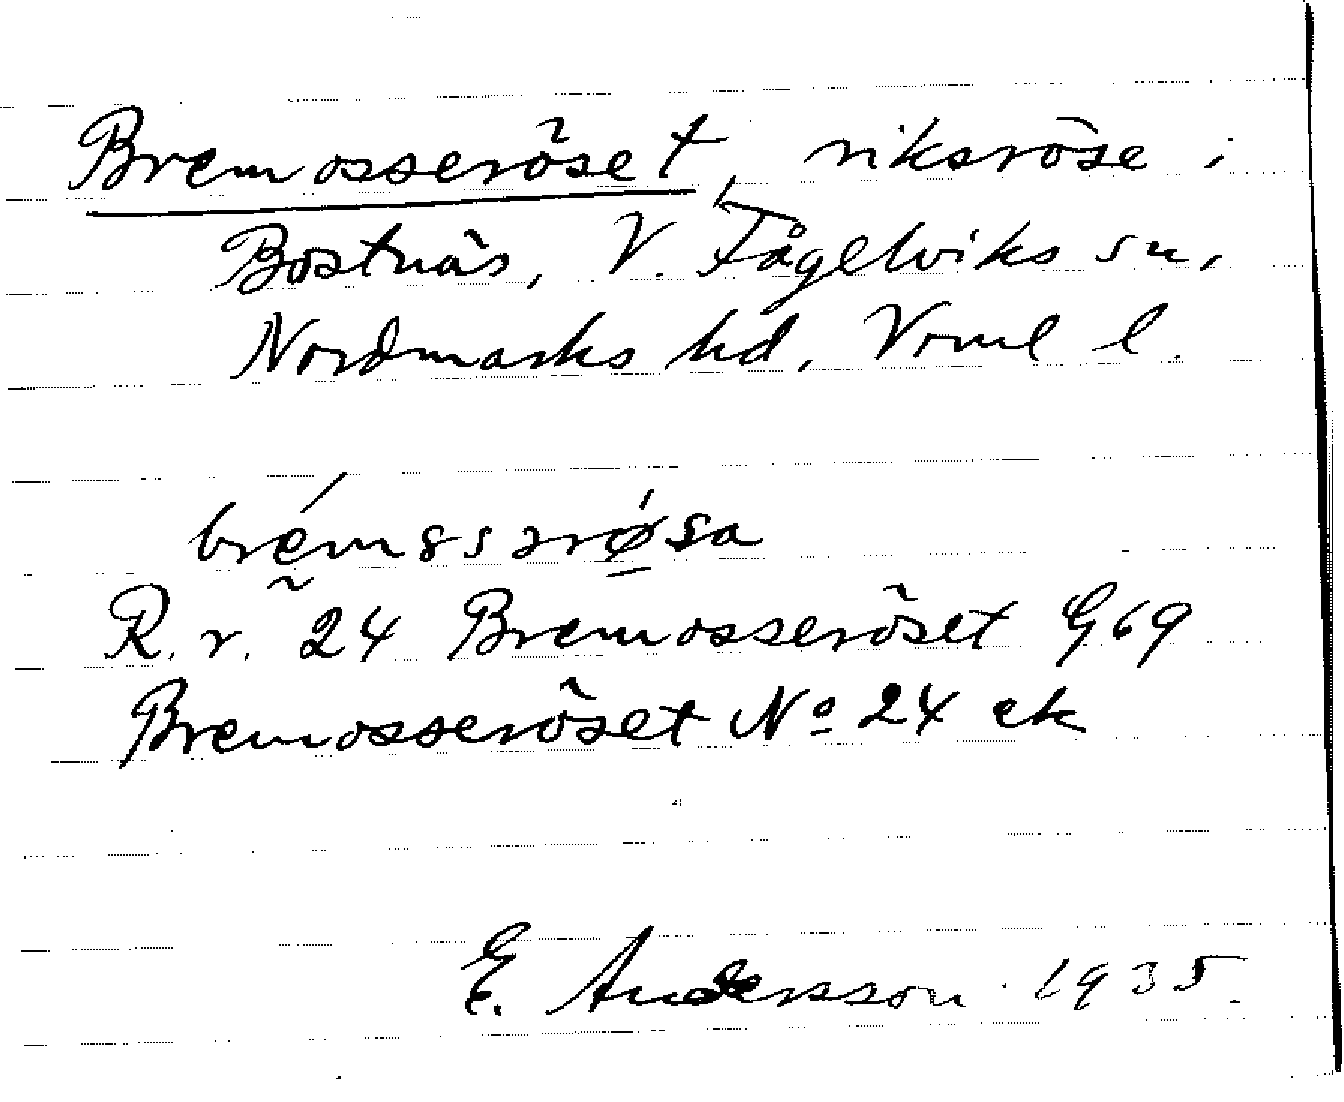 Bremosseröset, riksröse i
Bostnäs, V. Fågelviks sn,
Nordmarks hd, Vrml l.
R. r. 24 Bremosseröset G69
Bremosseröset No 24 ek
E. Andersson 1935.